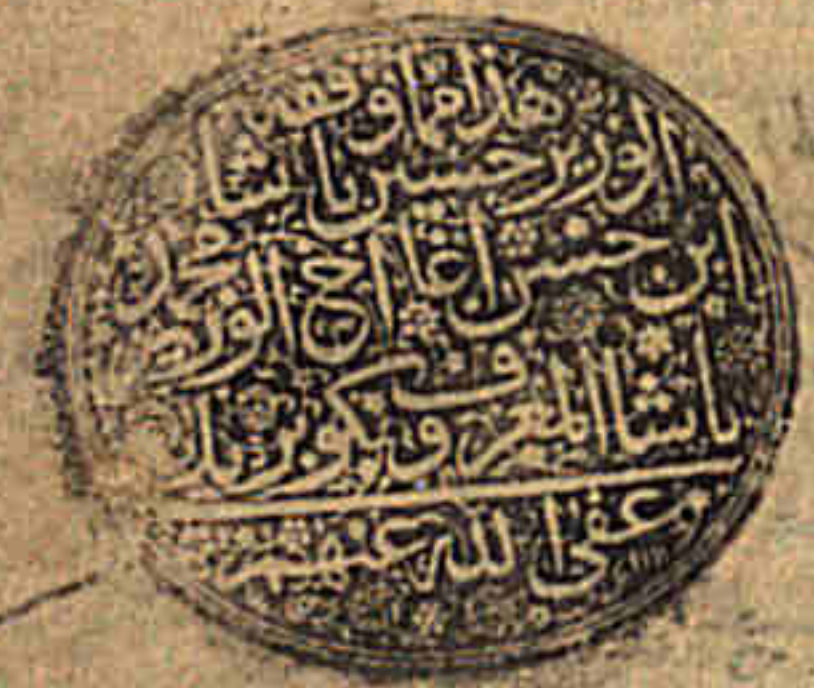 هذا مما وقفه
الوزير حسين باشا
ابن حسن اغا اخ الوزير محمد
باشا المعروف بكوبريلى
وعفى الله عنهم